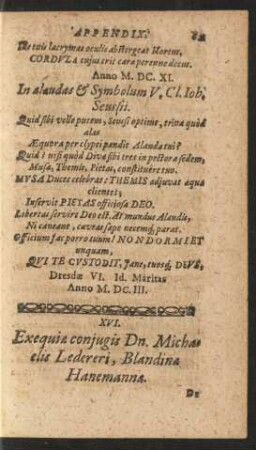 APPENDIX.
Ne tuis lacrymae oculis abstergeat Horus,
CORDVLA cujus eris cara perenne decus.
Anno M. DC. XI.
In alaudas & Symbolum V. Cl. Ioh.
Seussii.
Quid sibi velle putem, Seussi optime, trina quòd
alas
Æquora per clypei pandit Alauda tui?
Quid? nisi quòd Diva sibi tres in pectore sedem,
Musa, Themis, Pietas, constituere tuo.
MUSA Duces celebrat: THEMIS adjuvat aqua
clientes;
Inservit PIETAS officiosa DEO.
Libertas servire Deo est. At mundus Alaudis,
Ni caveant, caveas sape necemq; parat.
Officium fac porro tuum! NON DORMIET
unquam,
QUI TE CUSTODIT, Jane, tuosq; DEUS,
Dresdæ VI. Id. Martias
Anno M. DC. III.
XVI.
Exequiæ conjugis Dn. Micha-
elis Ledereri, Blandina
Hanemanna.
De